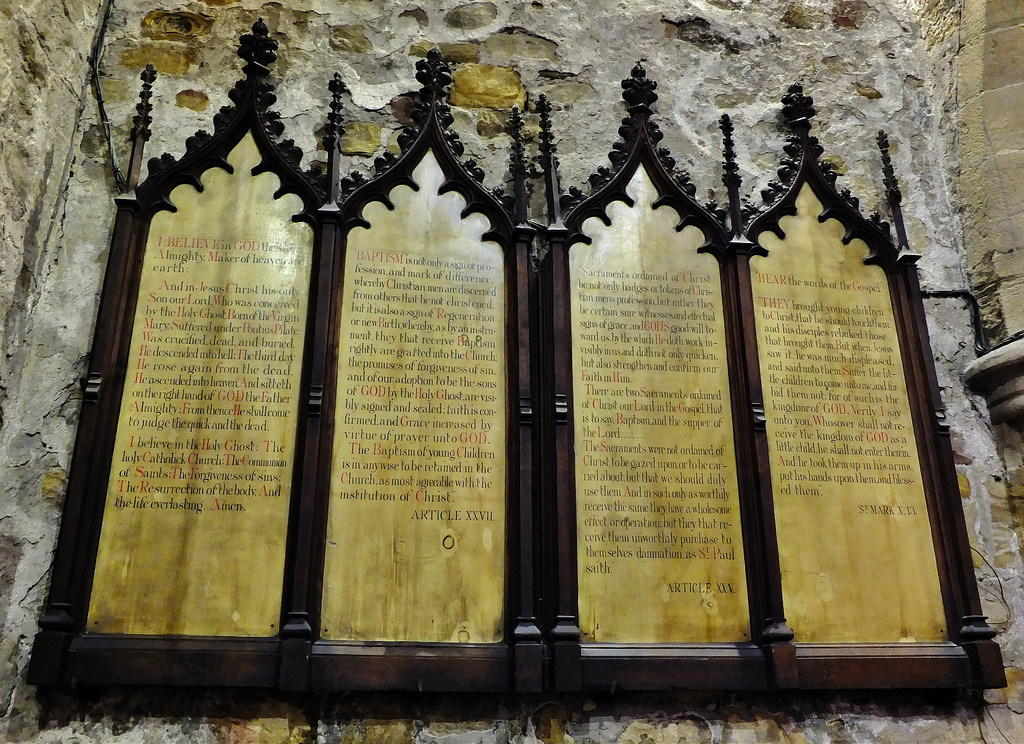 I BELIEVE in GOD the Father
Almighty, Maker of heaven and
earth:
And in Jesus Christ his only
Son our Lord, Who was conceived
by the Holy Ghost, Born of the Virgin
Mary, Suffered under Pontius Pilate,
Was crucified, dead, and buried.
He descended into hell; The third day
He rose again from the dead.
He ascended into heaven, And sitteth
on the right hand of GOD the Father
Almighty; From thence He shall come
to judge the quick and the dead.
I believe in the Holy Ghost; The
holy Catholick Church; The Communion
of Saints; The Forgiveness of sins;
The Resurrection of the body, And
the life everlasting. Amen.
BAPTISM is not only a sign of pro-
fession, and mark of difference,
whereby Christian men are discerned
from others that be not christened,
but it is also a sign of Regeneration
or new Birth, whereby, as by an instru-
ment, they that receive Baptism
rightly are grafted into the Church;
the promises of forgiveness of sin,
and of our adoption to be the sons
of GOD by the Holy Ghost, are visi-
bly signed and sealed; faith is con-
firmed, and Grace increased by
virtue of prayer unto GOD.
The Baptism of young Children
is in any wise to be retained in the
Church, as most agreeable with the
institution of Christ."
ARTICLE XXVII.
Sacraments ordained of Christ
be not only badges or tokens of Chris-
tian men's profession, but rather they
be certain sure witnesses and effectual
signs of grace, and GOD'S good will to-
ward us, by the which He doth work in-
visibly in us, and doth not only quicken,
but also strengthen and confirm our
Faith in Him.
There are two Sacraments ordained
of Christ our Lord in the Gospel, that
is to say, Baptism, and the supper of
the Lord.......
The Sacraments were not ordained of
Christ to be gazed upon, or to be car-
ried about, but that we should duly
use them. And in such only as worthily
receive the same they have a wholesome
effect or operation: but they that re-
ceive them unworthily purchase to
themselves damnation, as St. Paul
saith."
ARTICLE XXV.
"HEAR the words of the Gospel.
"THEY brought young children
to Christ, that he should touch them;
and his disciples rebuked those
that brought them. But when Jesus
saw it, he was much displeased,
and said unto them, Suffer the lit-
tle children to come unto me, and for-
bid them not; for of such is the
kingdom of GOD. Verily I say
unto you, Whosoever shall not re-
ceive the kingdom of GOD as a
little child, he shall not enter therein.
And he took them up in his arms,
put his hands upon them, and bless-
ed them."
ST. MARK X. 13.